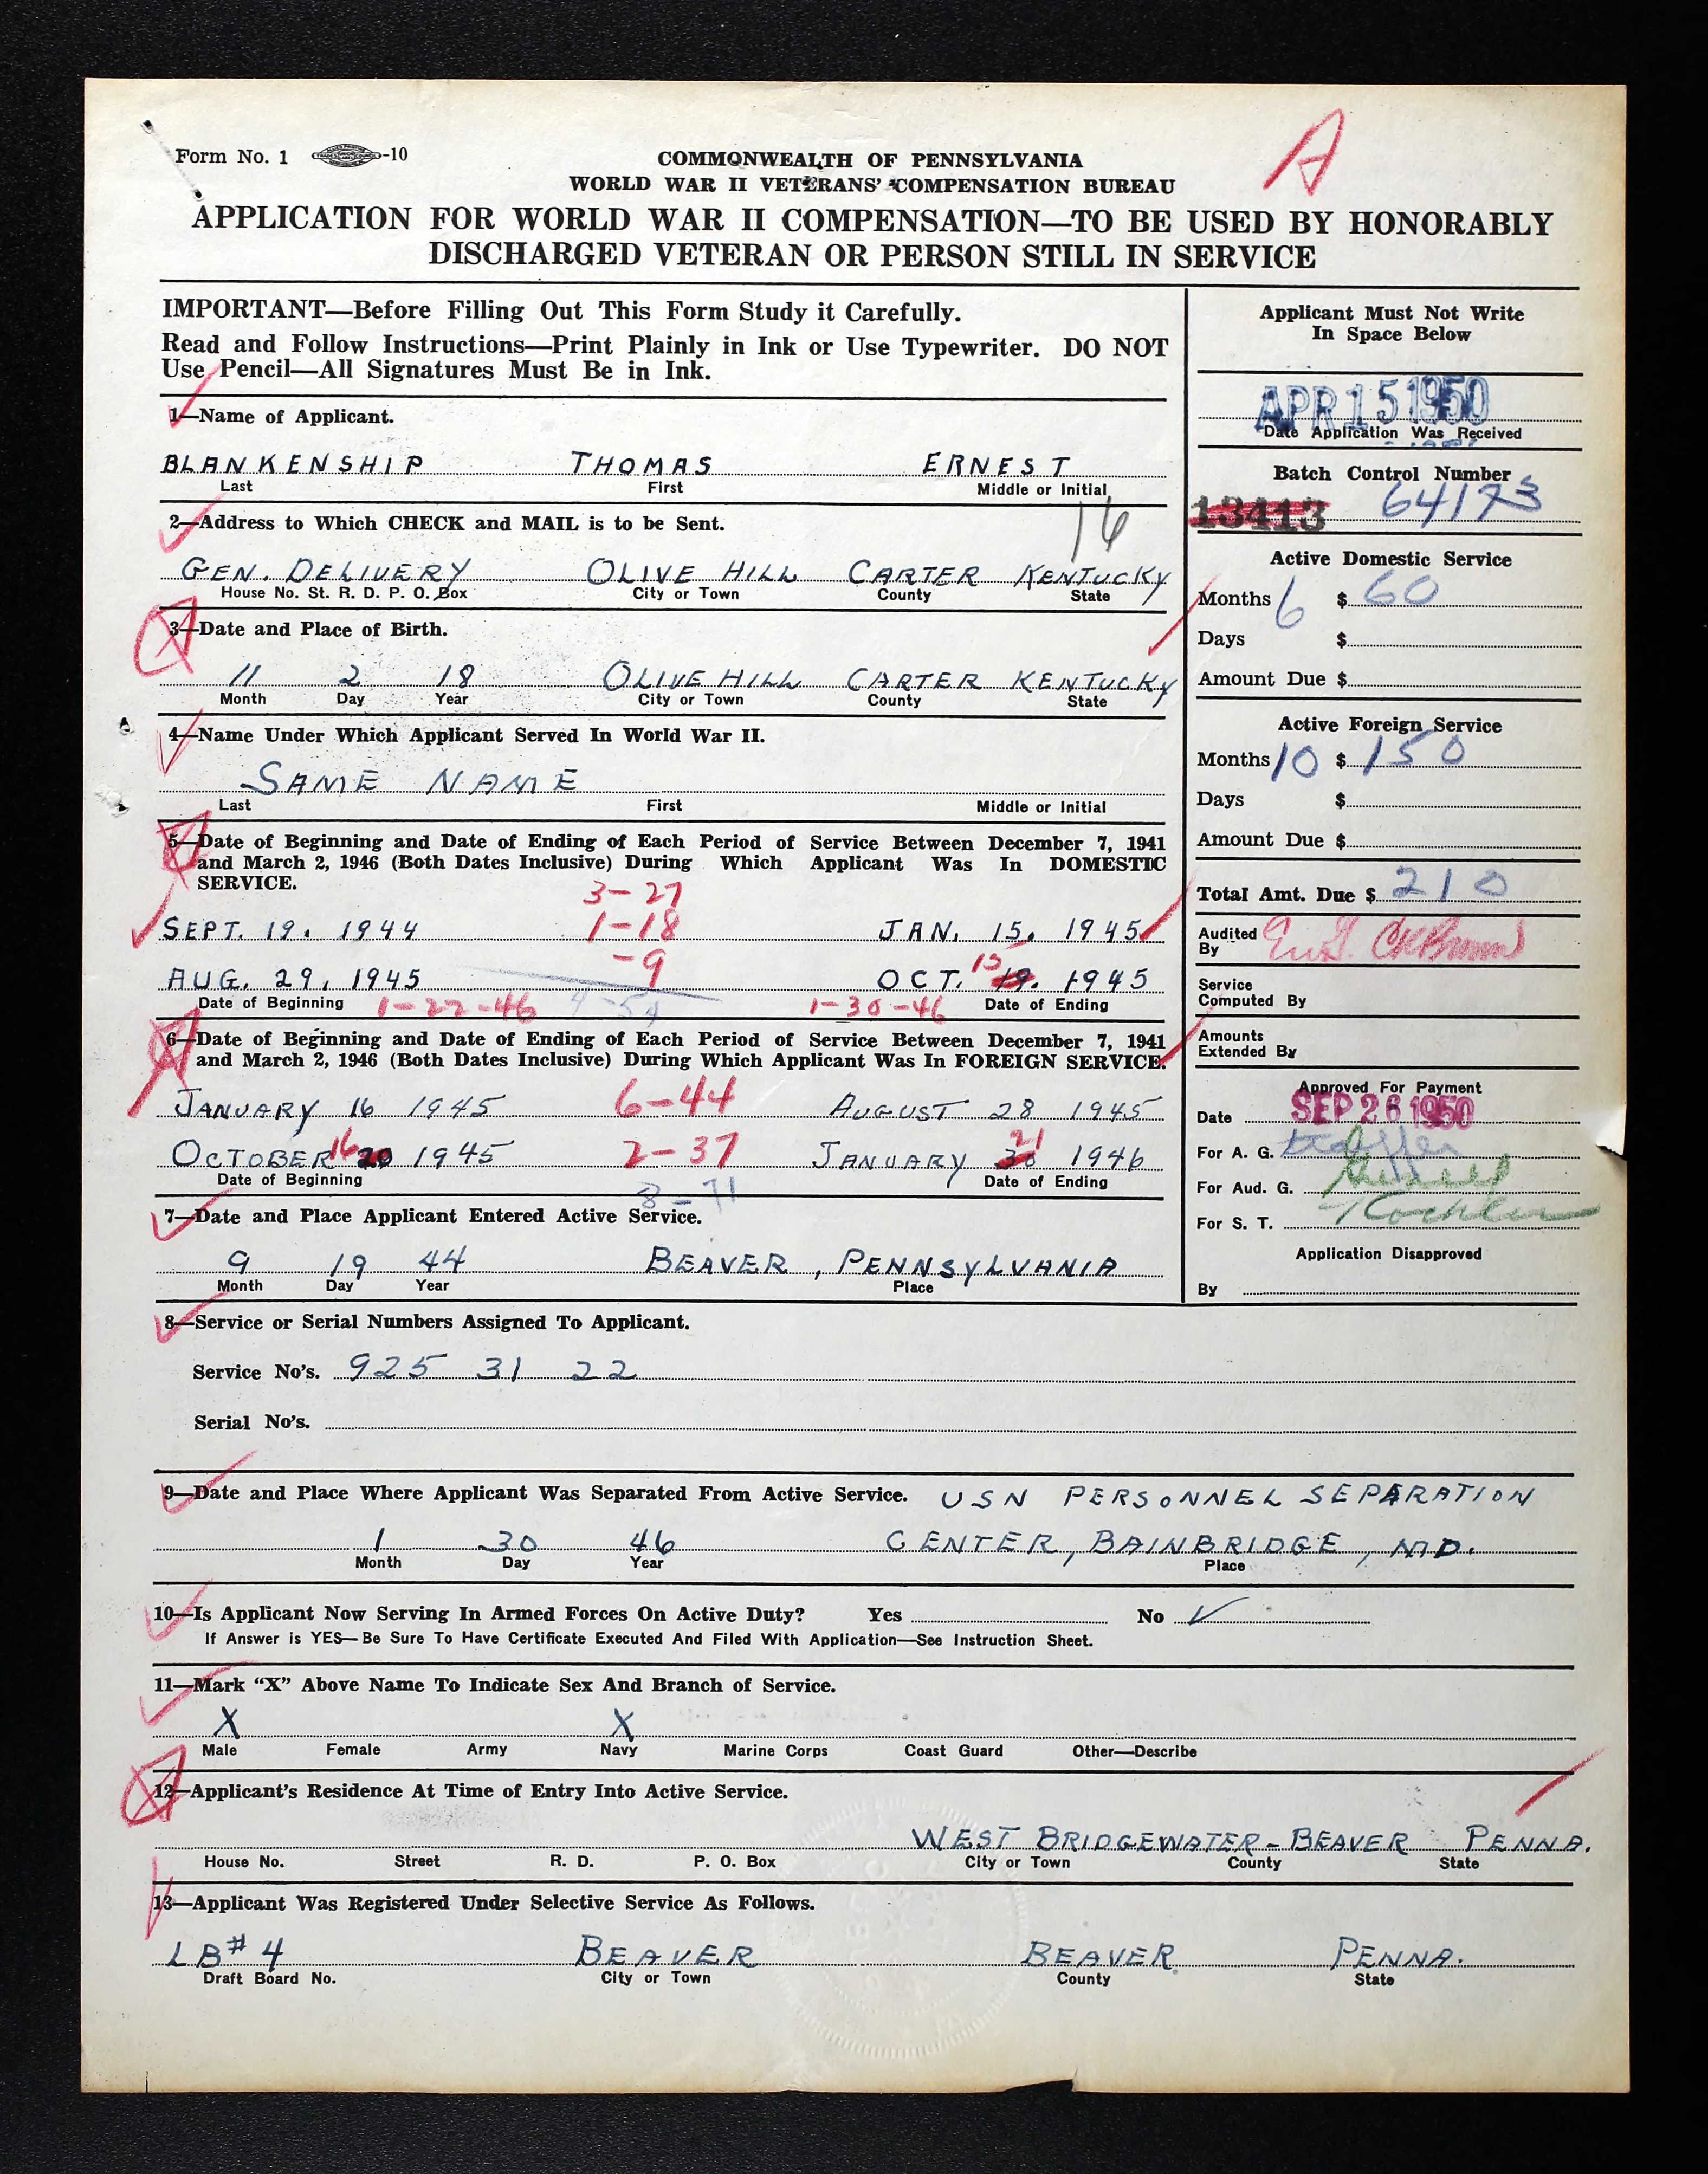 Form No. 1 -10
A
COMMONWEALTH OF PENNSYLVANIA
WORLD WAR II VETERANS' COMPENSATION BUREAU
APPLICATION FOR WORLD WAR II COMPENSATION—TO BE USED BY HONORABLY
DISCHARGED VETERAN OR PERSON STILL IN SERVICE
IMPORTANT—Before Filling Out This Form Study it Carefully.
Read and Follow Instructions—Print Plainly in Ink or Use Typewriter. DO NOT
Use Pencil—All Signatures Must Be in Ink.
1—Name of Applicant.
BLANKENSHIP THOMAS ERNEST
Last First Middle or Initial
2—Address to Which CHECK and MAIL is to be Sent.
16
GEN. DELIVERY OLIVE HILL CARTER KENTUCKY
House No. St. R. D. P. O. Box City or Town County State
3—Date and Place of Birth.
11 2 18 OLIVE HILL CARTER KENTUCKY
Month Day Year City or Town County State
4—Name Under Which Applicant Served In World War II.
SAME NAME
Last First Middle or Initial
5—Date of Beginning and Date of Ending of Each Period of Service Between December 7, 1941
and March 2, 1946 (Both Dates Inclusive) During Which Applicant Was In DOMESTIC
SERVICE.
3-27
SEPT. 19. 1944 1-18 JAN. 15. 1945
-9
AUG. 29, 1945 OCT. 15 19. 1945
Date of Beginning 1-22-46 4-54 1-30-46 Date of Ending
6—Date of Beginning and Date of Ending of Each Period of Service Between December 7, 1941
and March 2, 1946 (Both Dates Inclusive) During Which Applicant Was In FOREIGN SERVICE.
JANUARY 16 1945 6-44 AUGUST 28 1945
OCTOBER 16 20 1945 2-37 JANUARY 21 30 1946
Date of Beginning 8-71 Date of Ending
7—Date and Place Applicant Entered Active Service.
9 19 44 BEAVER, PENNSYLVANIA
Month Day Year Place
Applicant Must Not Write
In Space Below
APR 15 1950
Date Application Was Received
Batch Control Number
13413 64173
Active Domestic Service
Months 6 $ 60
Days $
Amount Due $
Active Foreign Service
Months 10 $ 150
Days $
Amount Due $
Total Amt. Due $ 210
Audited
By
Service
Computed By
Amounts
Extended By
Approved For Payment
Date SEP 26 1950
For A. G.
For Aud. G.
For S. T.
Application Disapproved
By
8—Service or Serial Numbers Assigned To Applicant.
Service No's. 925 31 22
Serial No's.
9—Date and Place Where Applicant Was Separated From Active Service. USN PERSONNEL SEPARATION
1 30 46 CENTER, BAINBRIDGE, MD.
Month Day Year Place
10—Is Applicant Now Serving In Armed Forces On Active Duty? Yes No ✓
If Answer is YES—Be Sure To Have Certificate Executed And Filed With Application—See Instruction Sheet.
11—Mark "X" Above Name To Indicate Sex And Branch of Service.
X X
Male Female Army Navy Marine Corps Coast Guard Other—Describe
12—Applicant's Residence At Time of Entry Into Active Service.
WEST BRIDGEWATER-BEAVER PENNA.
House No. Street R. D. P. O. Box City or Town County State
13—Applicant Was Registered Under Selective Service As Follows.
LB# 4 BEAVER BEAVER PENNA.
Draft Board No. City or Town County State